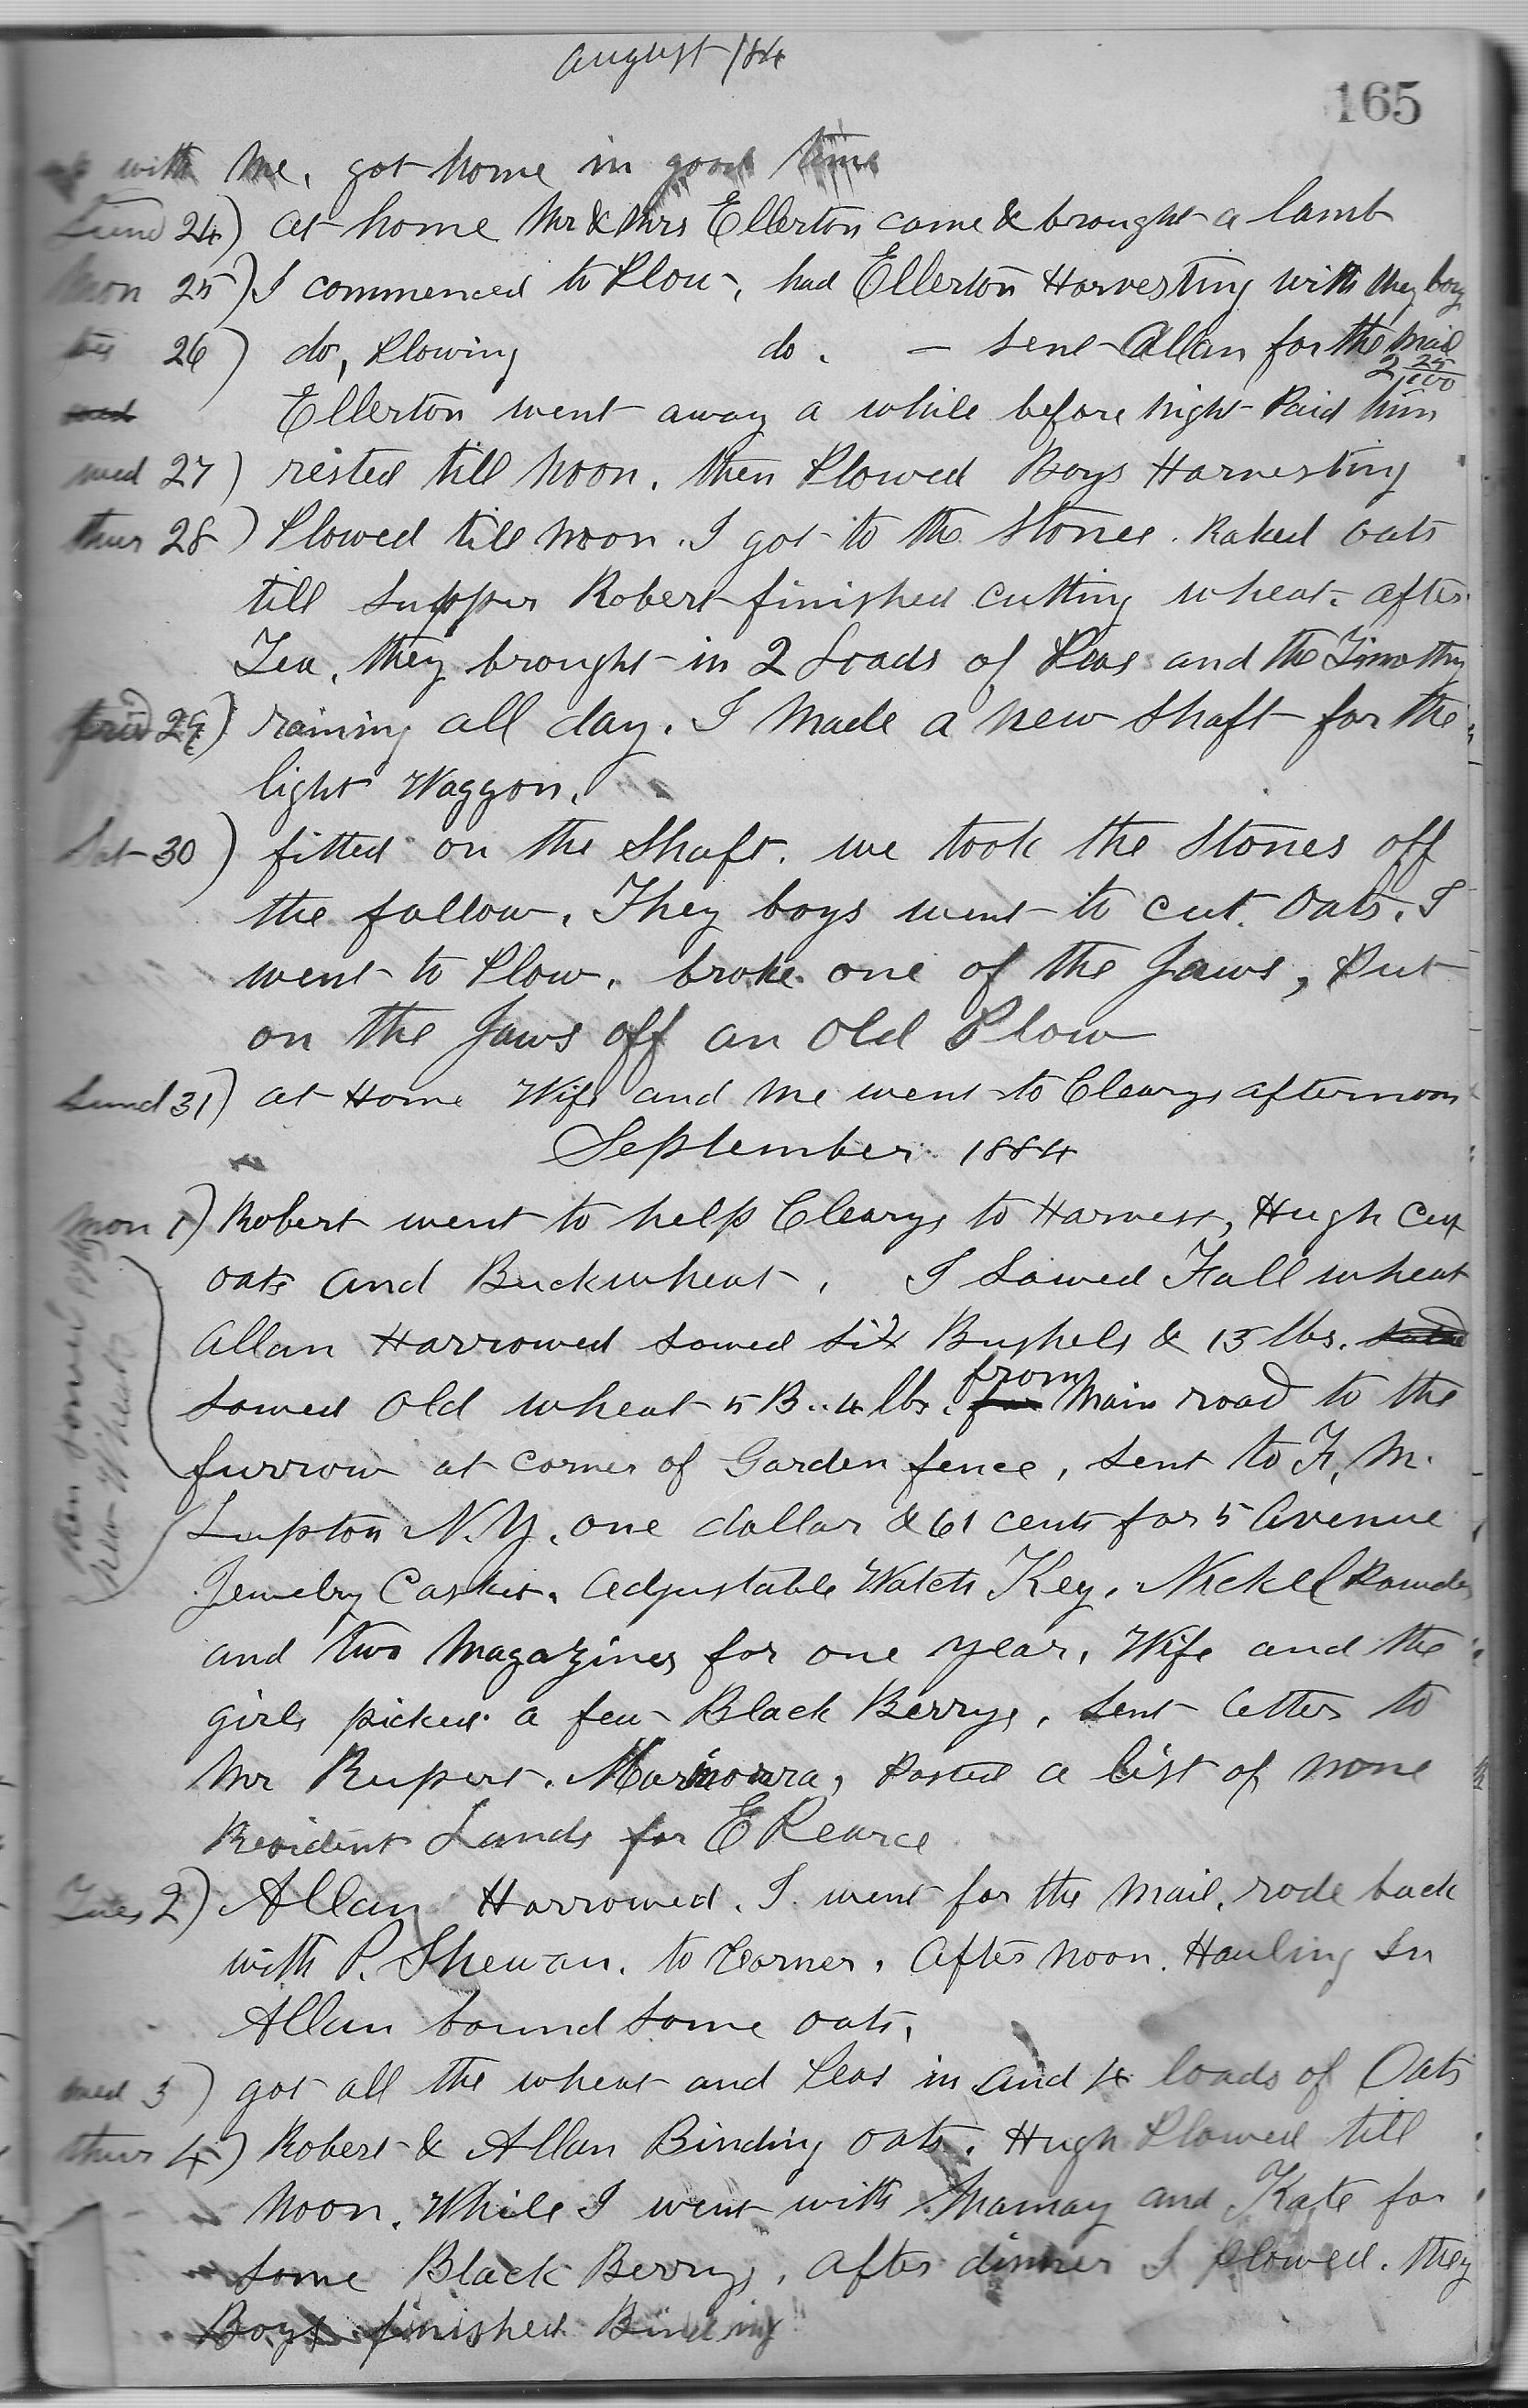 August /84
165
up with me, got home in good time
Sund 24) at home Mr & Mrs Ellerton came & brought a lamb
Mon 25) I commenced to Plow, had Ellerton Harvesting with they boys
tus 26) do, Plowing do. — sent Allan for the Mail
2 25/100
wed Ellerton went away a while before night Paid him
wed 27) rested till Noon, then Plowed Boys Harvesting
thur 28) Plowed till Noon. I got to the Stones. Raked oats
till Supper Robert finished cutting wheat. after
Tea, they brought in 2 Loads of Peas and the Timothy
frid 29) raining all day. I Made a new Shaft for the
light Waggon.
Sat 30) fitted on the Shaft. we took the Stones off
the fallow. They boys went to cut oats. I
went to Plow. broke one of the Jaws, Put
on the Jaws off an old Plow
Sund 31) at Home Wife and me went to Clearys afternoon
September 1884
Mon 1) Robert went to help Clearys to Harvest, Hugh Cut
oats and Buckwheat. I Sowed Fall wheat
Allan Harrowed sowed six Bushels & 13 lbs.
Sowed old wheat 5 B.. 4 lbs. from Main road to the
furrow at corner of Garden fence, sent to F. M.
Lupton N.Y. one dollar & 61 cents for 5 Avenue
Jewelry Casket. Adjustable Watch Key. Nickel Powder
and two Magazines for one year. Wife and the
girls picked a few Black Berrys, sent letter to
Mr Rupert. Marmora, Posted a list of none
Resident Lands for E Pearce
then sowed
New Wheat
Tues 2) Allan Harrowed. I went for the Mail, rode back
with P. Shewan. to Corner. After Noon. Hauling In
Allan bound some oats.
wed 3) got all the wheat and Peas in and 4 loads of Oats
thur 4) Robert & Allan Binding oats. Hugh Plowed till
Noon. While I went with Mamay and Kate for
some Black Berrys. After dinner I plowed. they
Boys finished Binding